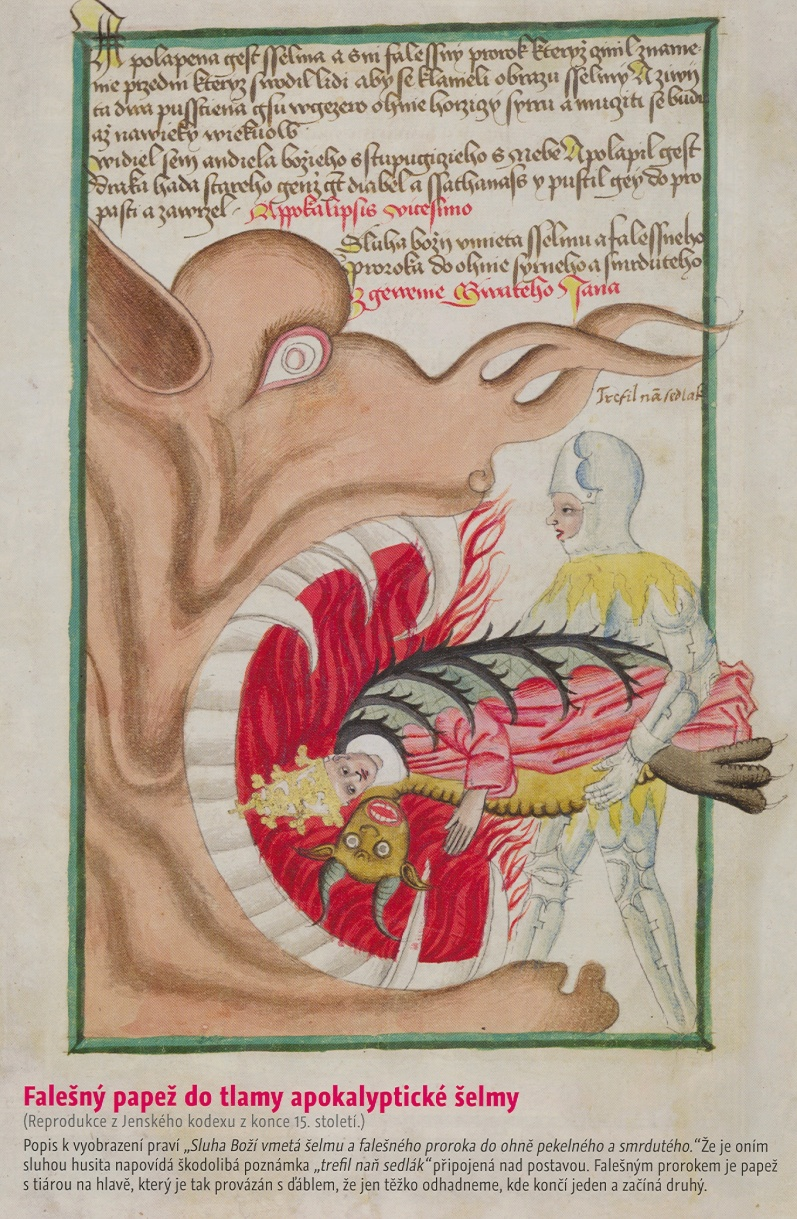 A polapena gest sselma a s ni falessny prorok kteryz cinil zname-
nie przedni kteryz swodil lidi aby se klaneli obrazu sselmy A ziwy
ta dwa pusstiena gsu w gezero ohnie horziczy syru a mucziti se budu
az nawieky wiekuow
widiel sem andiela bozieho s stupugiczieho s nebe A polapil gest
draka hada stareho genz gt diabel a ssathanass y pustil gey do pro
pasti a zawrzel
Appokalipsis vicesimo
Sluha bozy vmieta sselmu a falessneho
proroka do ohnie syrneho a smrduteho
z gewenie Swateho Jana
Trefil nan sedlak
Falešný papež do tlamy apokalyptické šelmy
(Reprodukce z Jenského kodexu z konce 15. století.)
Popis k vyobrazení praví „Sluha Boží vmetá šelmu a falešného proroka do ohně pekelného a smrdutého.“ Že je oním
sluhou husita napovídá škodolibá poznámka „trefil naň sedlák“ připojená nad postavou. Falešným prorokem je papež
s tiárou na hlavě, který je tak provázán s ďáblem, že jen těžko odhadneme, kde končí jeden a začíná druhý.